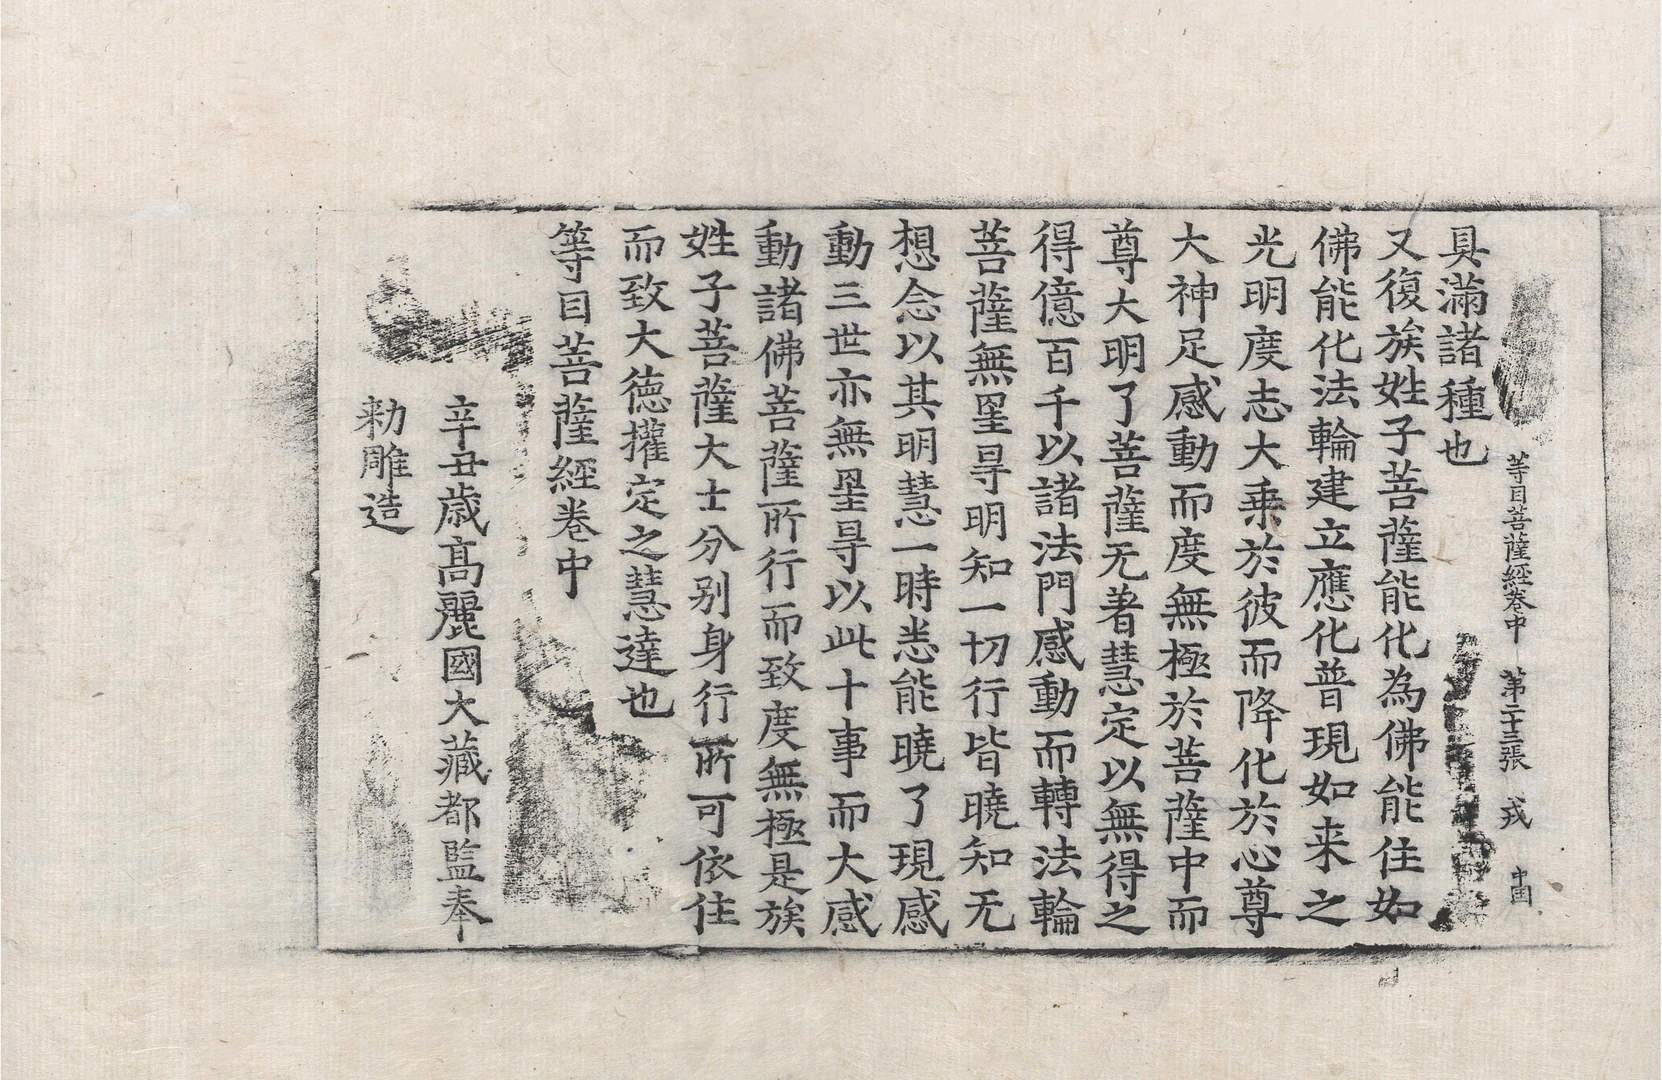 等目菩薩經卷中 第二十三張 戎
具滿諸種也
又復族姓子菩薩能化為佛能住如
佛能化法輪建立應化普現如来之
光明度志大乗於彼而降化於心尊
大神足感動而度無極於菩薩中而
尊大明了菩薩无著慧定以無得之
得億百千以諸法門感動而轉法輪
菩薩無罣㝵明知一切行皆曉知无
想念以其明慧一時悉能曉了現感
動三世亦無罣㝵以此十事而大感
動諸佛菩薩所行而致度無極是族
姓子菩薩大士分别身行所可依住
而致大德權定之慧達也
等目菩薩經卷中
辛丑歳髙麗國大藏都監奉
勑雕造